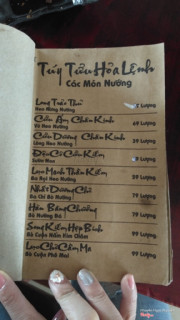 Tuý Tửu Hoa Lệnh
Các Món Nướng
Long Trảo Thủ
9 Lượng
Cửu Âm Chân Kinh
Vú Heo Nướng
69 Lượng
Cửu Dương Chân Kinh
Lòng Heo Nướng
59 Lượng
Độc Cô Cửu Kiếm
Sườn Heo
Lượng
Lục Mạch Thần Kiếm
Ba Rọi Heo Nướng
59 Lượng
Nhất Dương Chỉ
Ba Chỉ Bò Nướng
79 Lượng
Hàn Băng Chưởng
Bò Nướng Đá
79 Lượng
Song Kiếm Hợp Bính
Bò Cuộn Nấm Kim Châm
99 Lượng
Bò Cuộn Phô Mai
99 Lượng